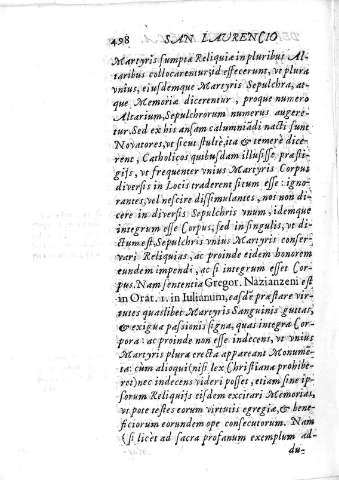 498 SAN LAURENCIO
Martyris sumptæ Reliquiæ in pluribus Al-
taribus collocarentur; id effecerunt, vt plura
vnius, eiusdemque Martyris Sepulchra, at-
que Memoriæ dicerentur, proque numero
Altarium, Sepulchrorum numerus augere-
tur. Sed ex his ansam calumniãdi nacti sunt
Novatores, vt sicut stultè, ita & temerè dice-
rent, Catholicos quibusdam illusisse præsti-
gijs, vt frequenter vnius Martyris Corpus
diversis in Locis traderent situm esse: igno-
rantes, vel nescire dissimulantes, non non di-
cere in diversis Sepulchris vnum, idemque
integrum esse Corpus, sed in singulis, vt di-
ctum est, Sepulchris vnius Martyris conser-
vari Reliquias, ac proinde eidem honorem
eundem impendi, ac si integrum esset Cor-
pus. Nam sententia Gregor. Nazianzeni est
in Orat. 1. in Iulianum, easdẽ præstare vir-
tutes quaslibet Martyris Sanguinis guttas,
& exigua passionis signa, quas integra Cor-
pora: ac proinde non esse indecens, vt vnius
Martyris plura erecta appareant Monume-
ta: cum alioqui (nisi lex Christiana prohibe-
ret) nec indecens videri posset, etiam sine ip-
sorum Reliquijs eisdem excitari Memorias,
vt pote testes eorum virtutis egregiæ, & bene-
ficiorum eorundem ope consecutorum. Nam
(si licèt ad sacra profanum exemplum ad-
du-